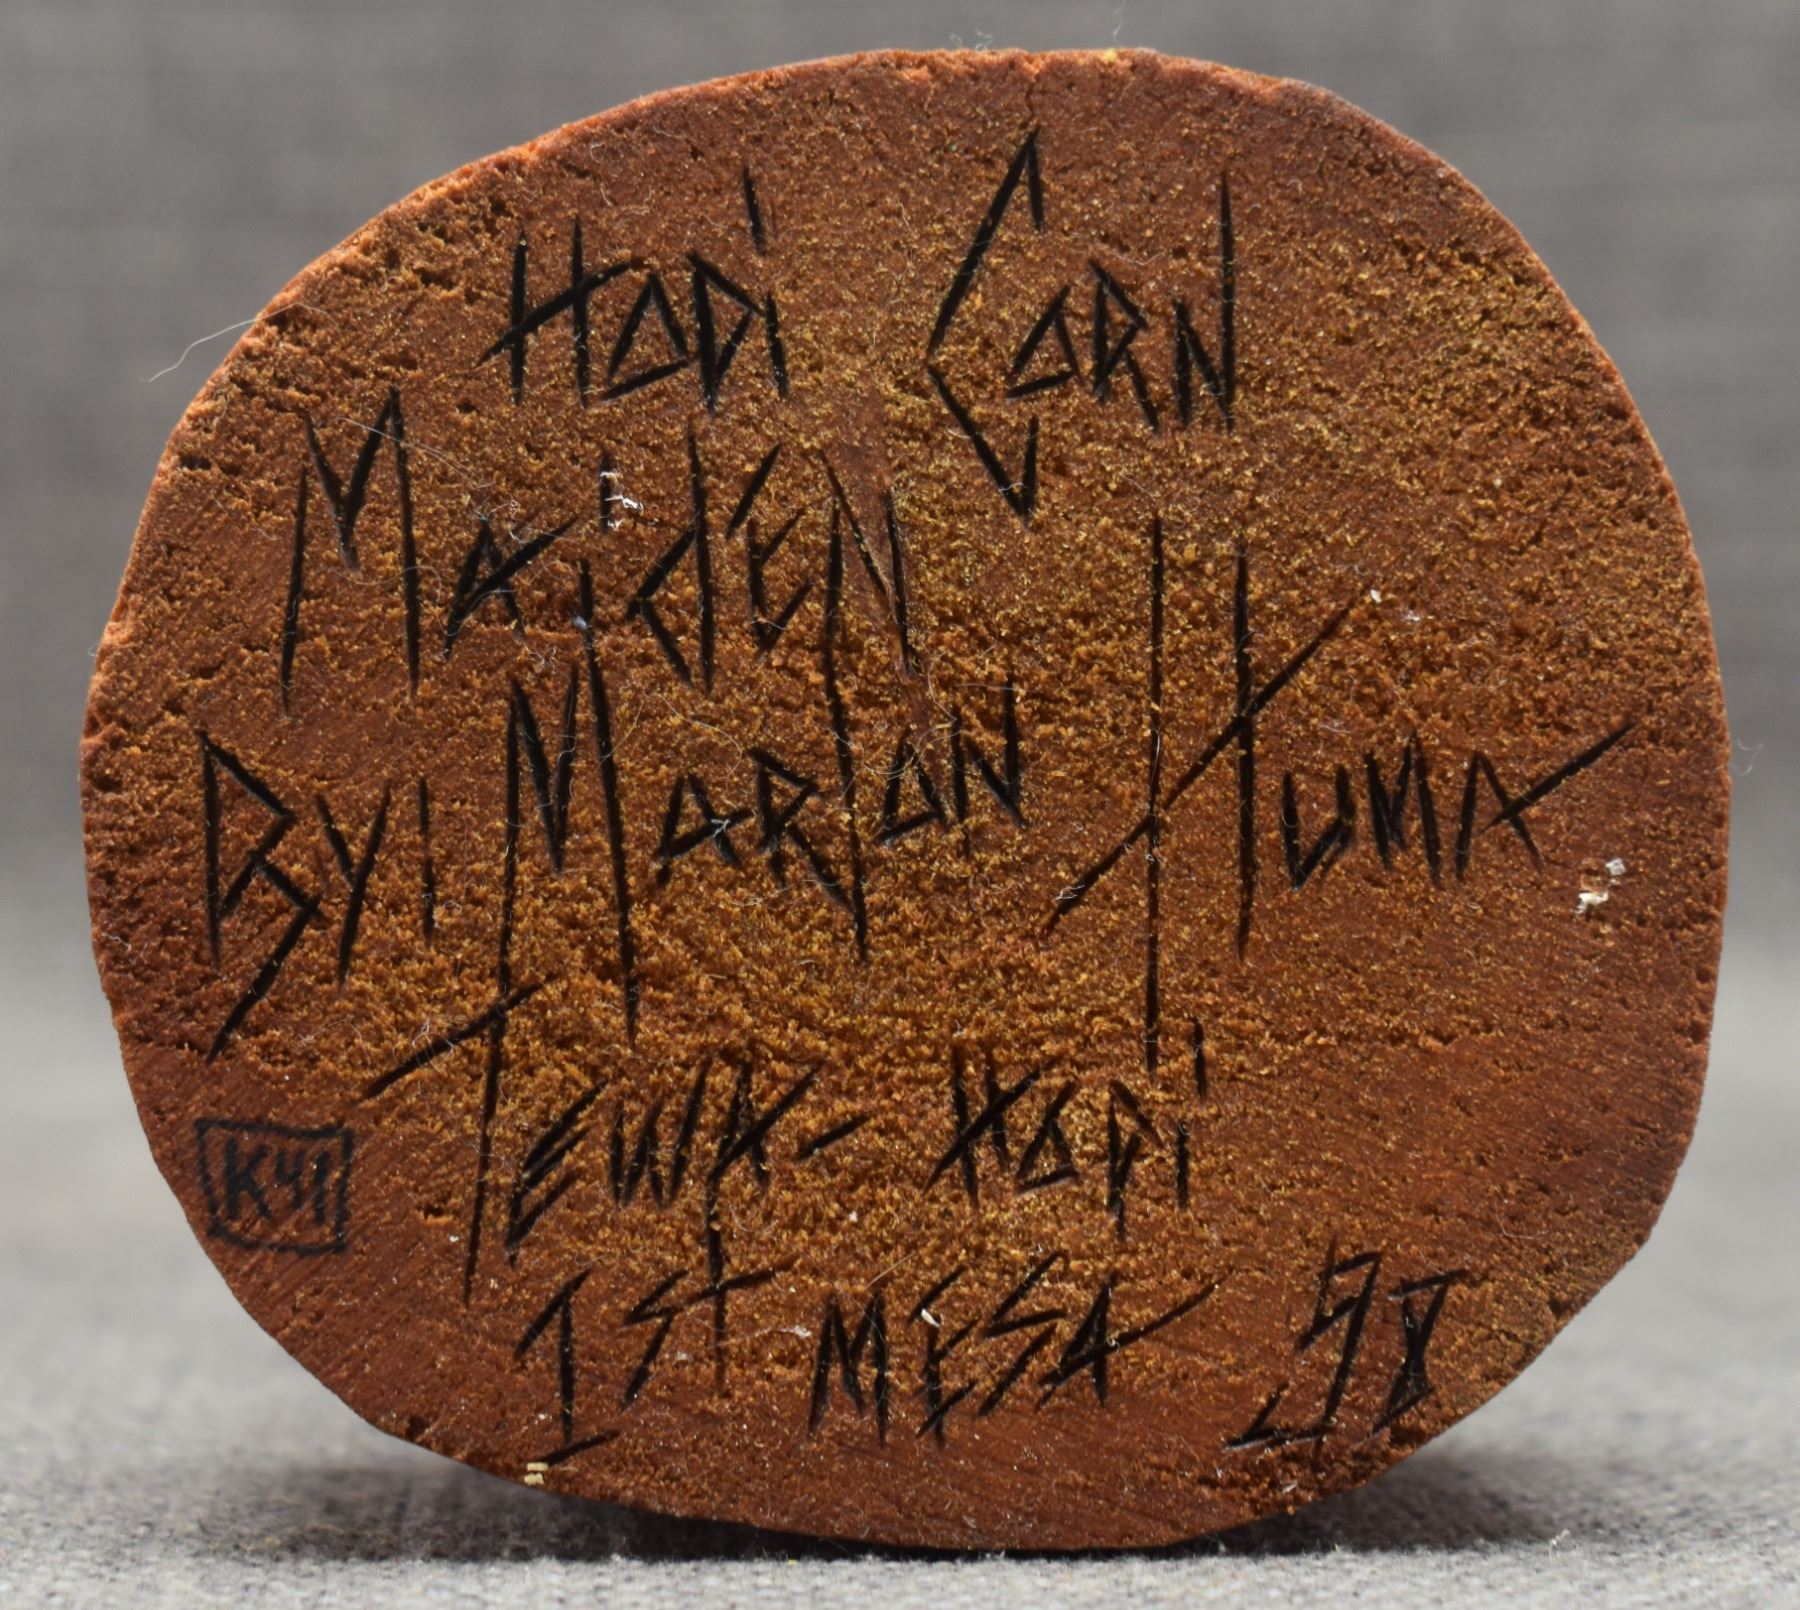 Hopi Corn
Maiden
By: Marlon Huma
Tewa - Hopi
1st Mesa 98
K41